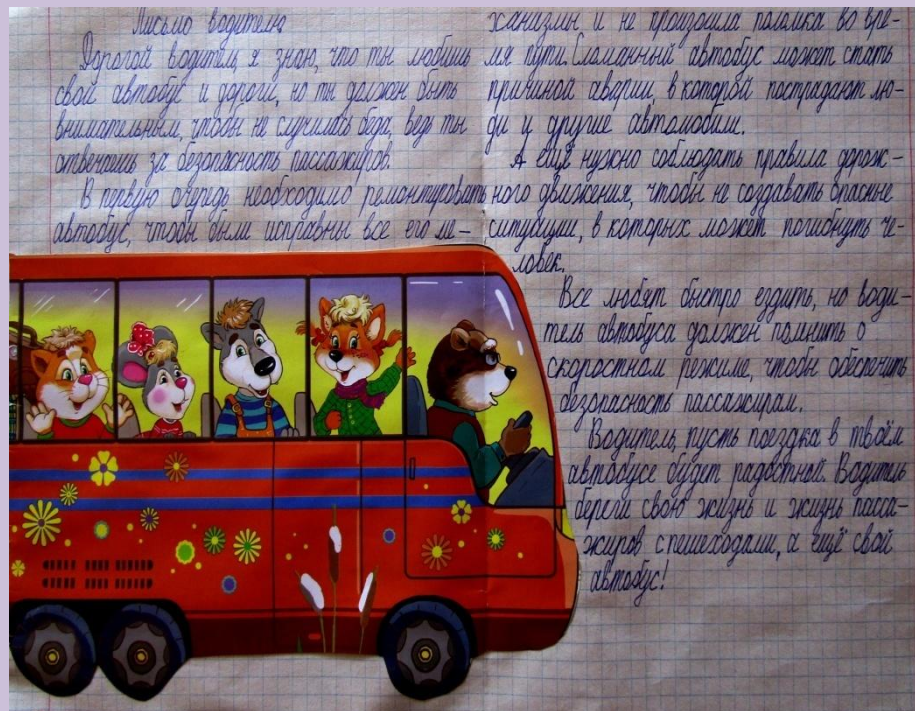 Письмо водителю
Дорогой водитель, я знаю, что ты любишь
свой автобус и дороги, но ты должен быть
внимательным, чтобы не случилась беда, ведь ты
отвечаешь за безопасность пассажиров.
В первую очередь необходимо ремонтировать
автобус, чтобы были исправны все его ме-
ханизмы и не произошла поломка во вре-
мя пути. Сломанный автобус может стать
причиной аварии, в которой пострадают лю-
ди и другие автомобили.
А ещё нужно соблюдать правила дорож-
ного движения, чтобы не создавать опасные
ситуации, в которых может погибнуть че-
ловек.
Все любят быстро ездить, но води-
тель автобуса должен помнить о
скоростном режиме, чтобы обеспечить
безопасность пассажирам.
Водитель, пусть поездка в твоём
автобусе будет радостной. Водитель
береги свою жизнь и жизнь пасса-
жиров с пешеходами, а ещё свой
автобус!